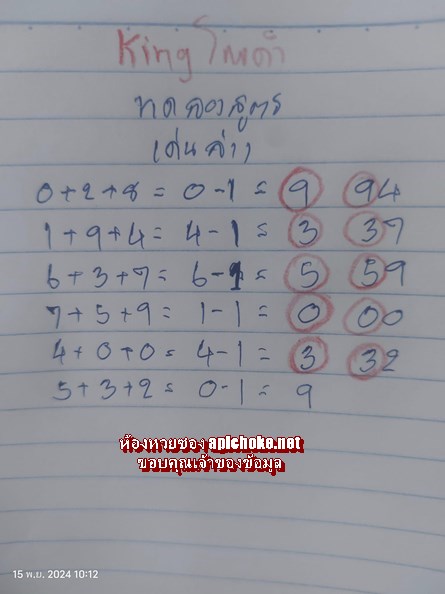 King โณดำ
ทดลองสูตร
เด่นล่าง
0+2+8= 0-1= 9 94
1+9+4= 4-1= 3 37
6+3+7= 6-1= 5 59
7+5+9= 1-1= 0 00
4+0+0= 4-1= 3 32
5+3+2= 0-1= 9
ห้องหวยซอง apichoke.net
ขอบคุณเจ้าของข้อมูล
15 พ.ย. 2024 10:12